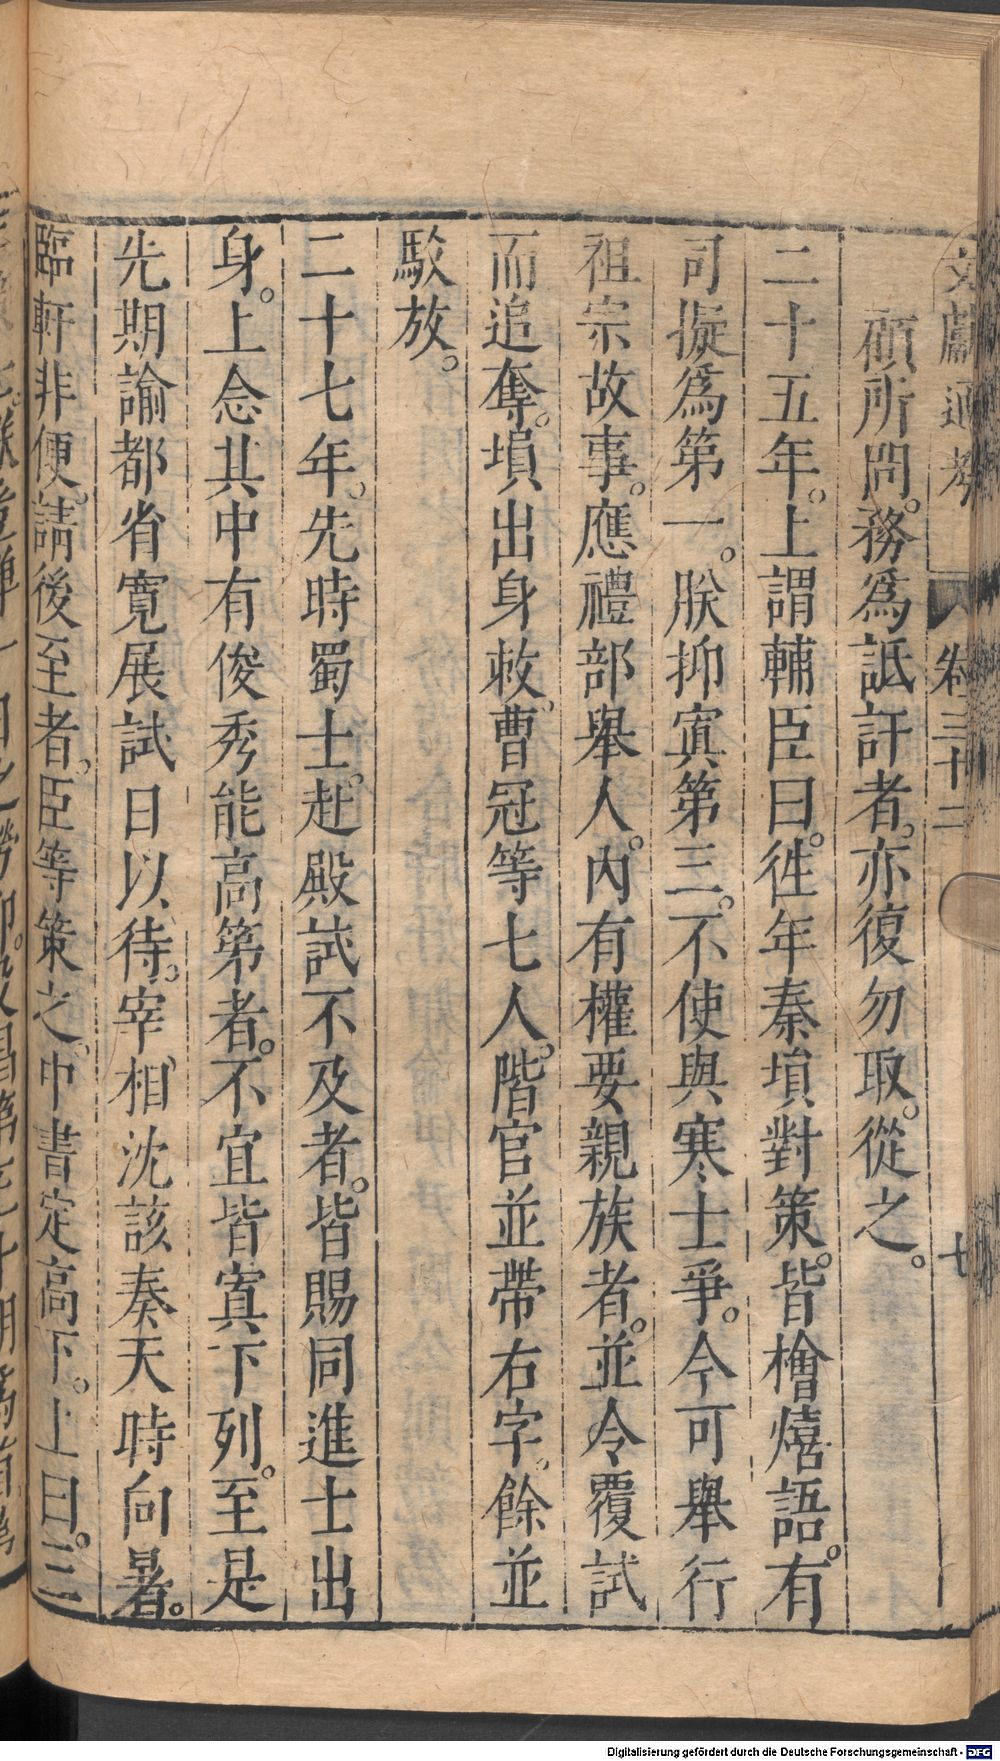 文獻通考 卷三十二 七
顧所問。務爲詆訐者。亦復勿取。從之。
二十五年。上謂輔臣曰。徃年秦塤對策。皆檜熺語。有
司擬爲第一。朕抑寘第三。不使與寒士爭。今可舉行
祖宗故事。應禮部舉人。內有權要親族者。並令覆試
而追奪。塤出身敕。曹冠等七人。階官並帶右字。餘並
駁放。
二十七年。先時蜀士。赴殿試不及者。皆賜同進士出
身。上念其中有俊秀能高第者。不宜皆寘下列。至是
先期諭都省寬展試日以待。宰相沈該奏天時向暑。
臨軒非便。請後至者。臣等策之。中書定高下。上曰。三
Digitalisierung gefördert durch die Deutsche Forschungsgemeinschaft - DFG